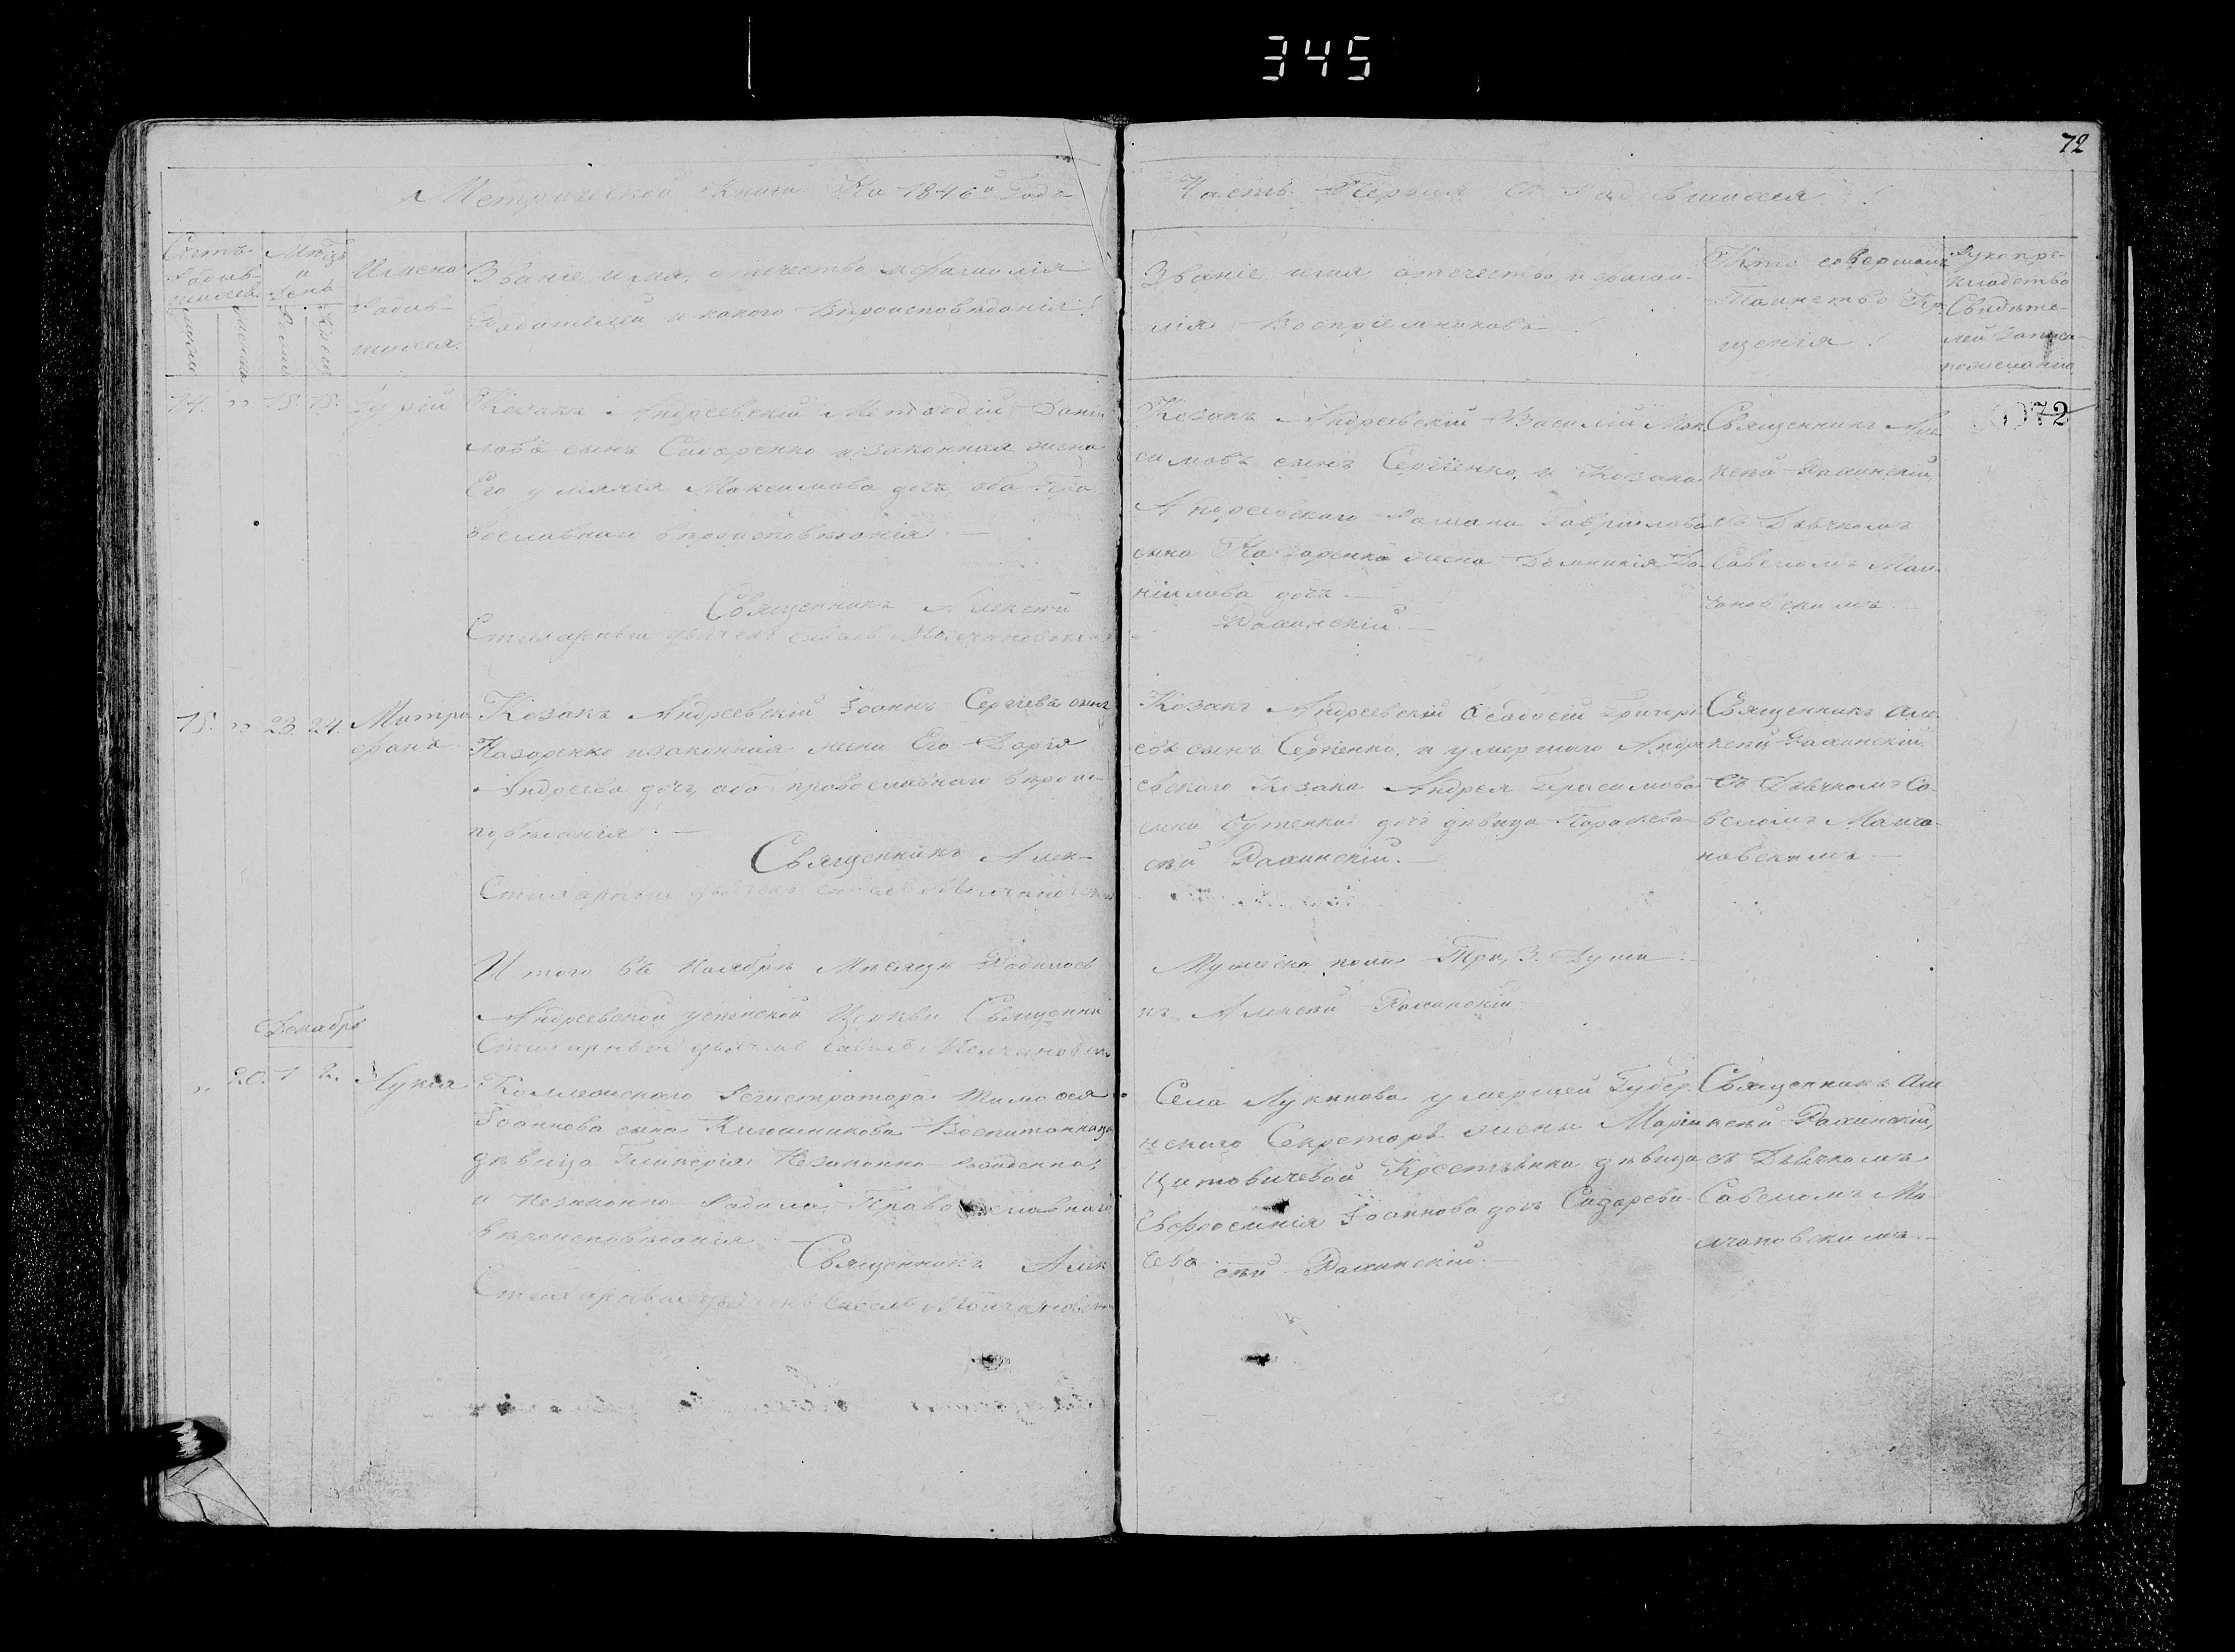 345
72
Метрической Книги На 1846й Годъ
Часть Первая О Родившихся
Счетъ Родив-шихся
Мѣсцъ и День
Имена Родив-шихся.
Званіе, имя, отечество и фамилія
Родителей и какого Вѣроисповѣданія!
Званіе имя отечество и фами-
лія Воспріемниковъ
Кто совершалъ
Таинство Кр
щенія
Рукопри-
кладство
Свидѣте-
лей Записи
14. " 15. 15. Гурій
Козакъ Андреевскій Методій Дані
ловъ сынъ Сидоренко и законная жена
Его уліянія Максимова дочь, оба Пра
вославнаго вѣроисповѣданія. —
Священникъ Алексѣй
Стихарный дьячекъ Савелъ Молчановскій
Козакъ Андреевскій Василій Мак
симовъ сынъ Сергіенко, и Козака
Андреевскаго Романа Гавріилова
сына Назаренка жена Домникія Да-
ніилова дочь. —
Рахинскій. —
Священникъ Але
ксѣй Рахинскій
съ Дьячкомъ
Савеломъ Мол-
чановскимъ.
0072
15. " 23. 24. Митро
фанъ
Козакъ Андреевскій Іоаннъ Сергіевъ сынъ
Назаренко и законная жена Его Дарія
Андреева дочь, оба православнаго вѣроис-
повѣданія. —
Священникъ Алек-
Стихарный дьячекъ Савелъ Молчановскій
Козакъ Андреевскій Ѳеодосій Григорі
евъ сынъ Сергіенко, и умершаго Андре
евскаго Козака Андрея Герасимова
сына Бутенка дочь дѣвица Параскева
сѣй Рахинскій. —
Священникъ Але-
ксѣй Рахинскій
съ Дьячкомъ Са-
веломъ Молча-
новскимъ. —
Итого въ Ноябрѣ Мѣсяцѣ Родилось
Мужеска пола Три, 3. Души
Андреевской успенской Церкви Священни
къ Алексѣй Рахинскій
Стихарный дьячекъ Савелъ Молчановскій
Декабрь
" 20. 1 2. Лукія
Коллежскаго Регистратора Тимоѳея
Іоаннова сына Воспитанница
дѣвица Гликерія Незаконно рожденна,
и незаконно Родила, Православнаго
Вѣроисповѣданія —
Священникъ Алек
Стихарный дьячекъ Савелъ Молчановскій
Села Лукинова умершей Губер
нскаго Секретаря жены Маріи
Цитовичевой Крестьянка дѣвица
Евфросинія Іоаннова дочь Сидореви-
чева
сѣй Рахинскій. —
Священникъ Але
ксѣй Рахинскій,
съ Дьячкомъ
Савеломъ Мо-
лчановскимъ. —